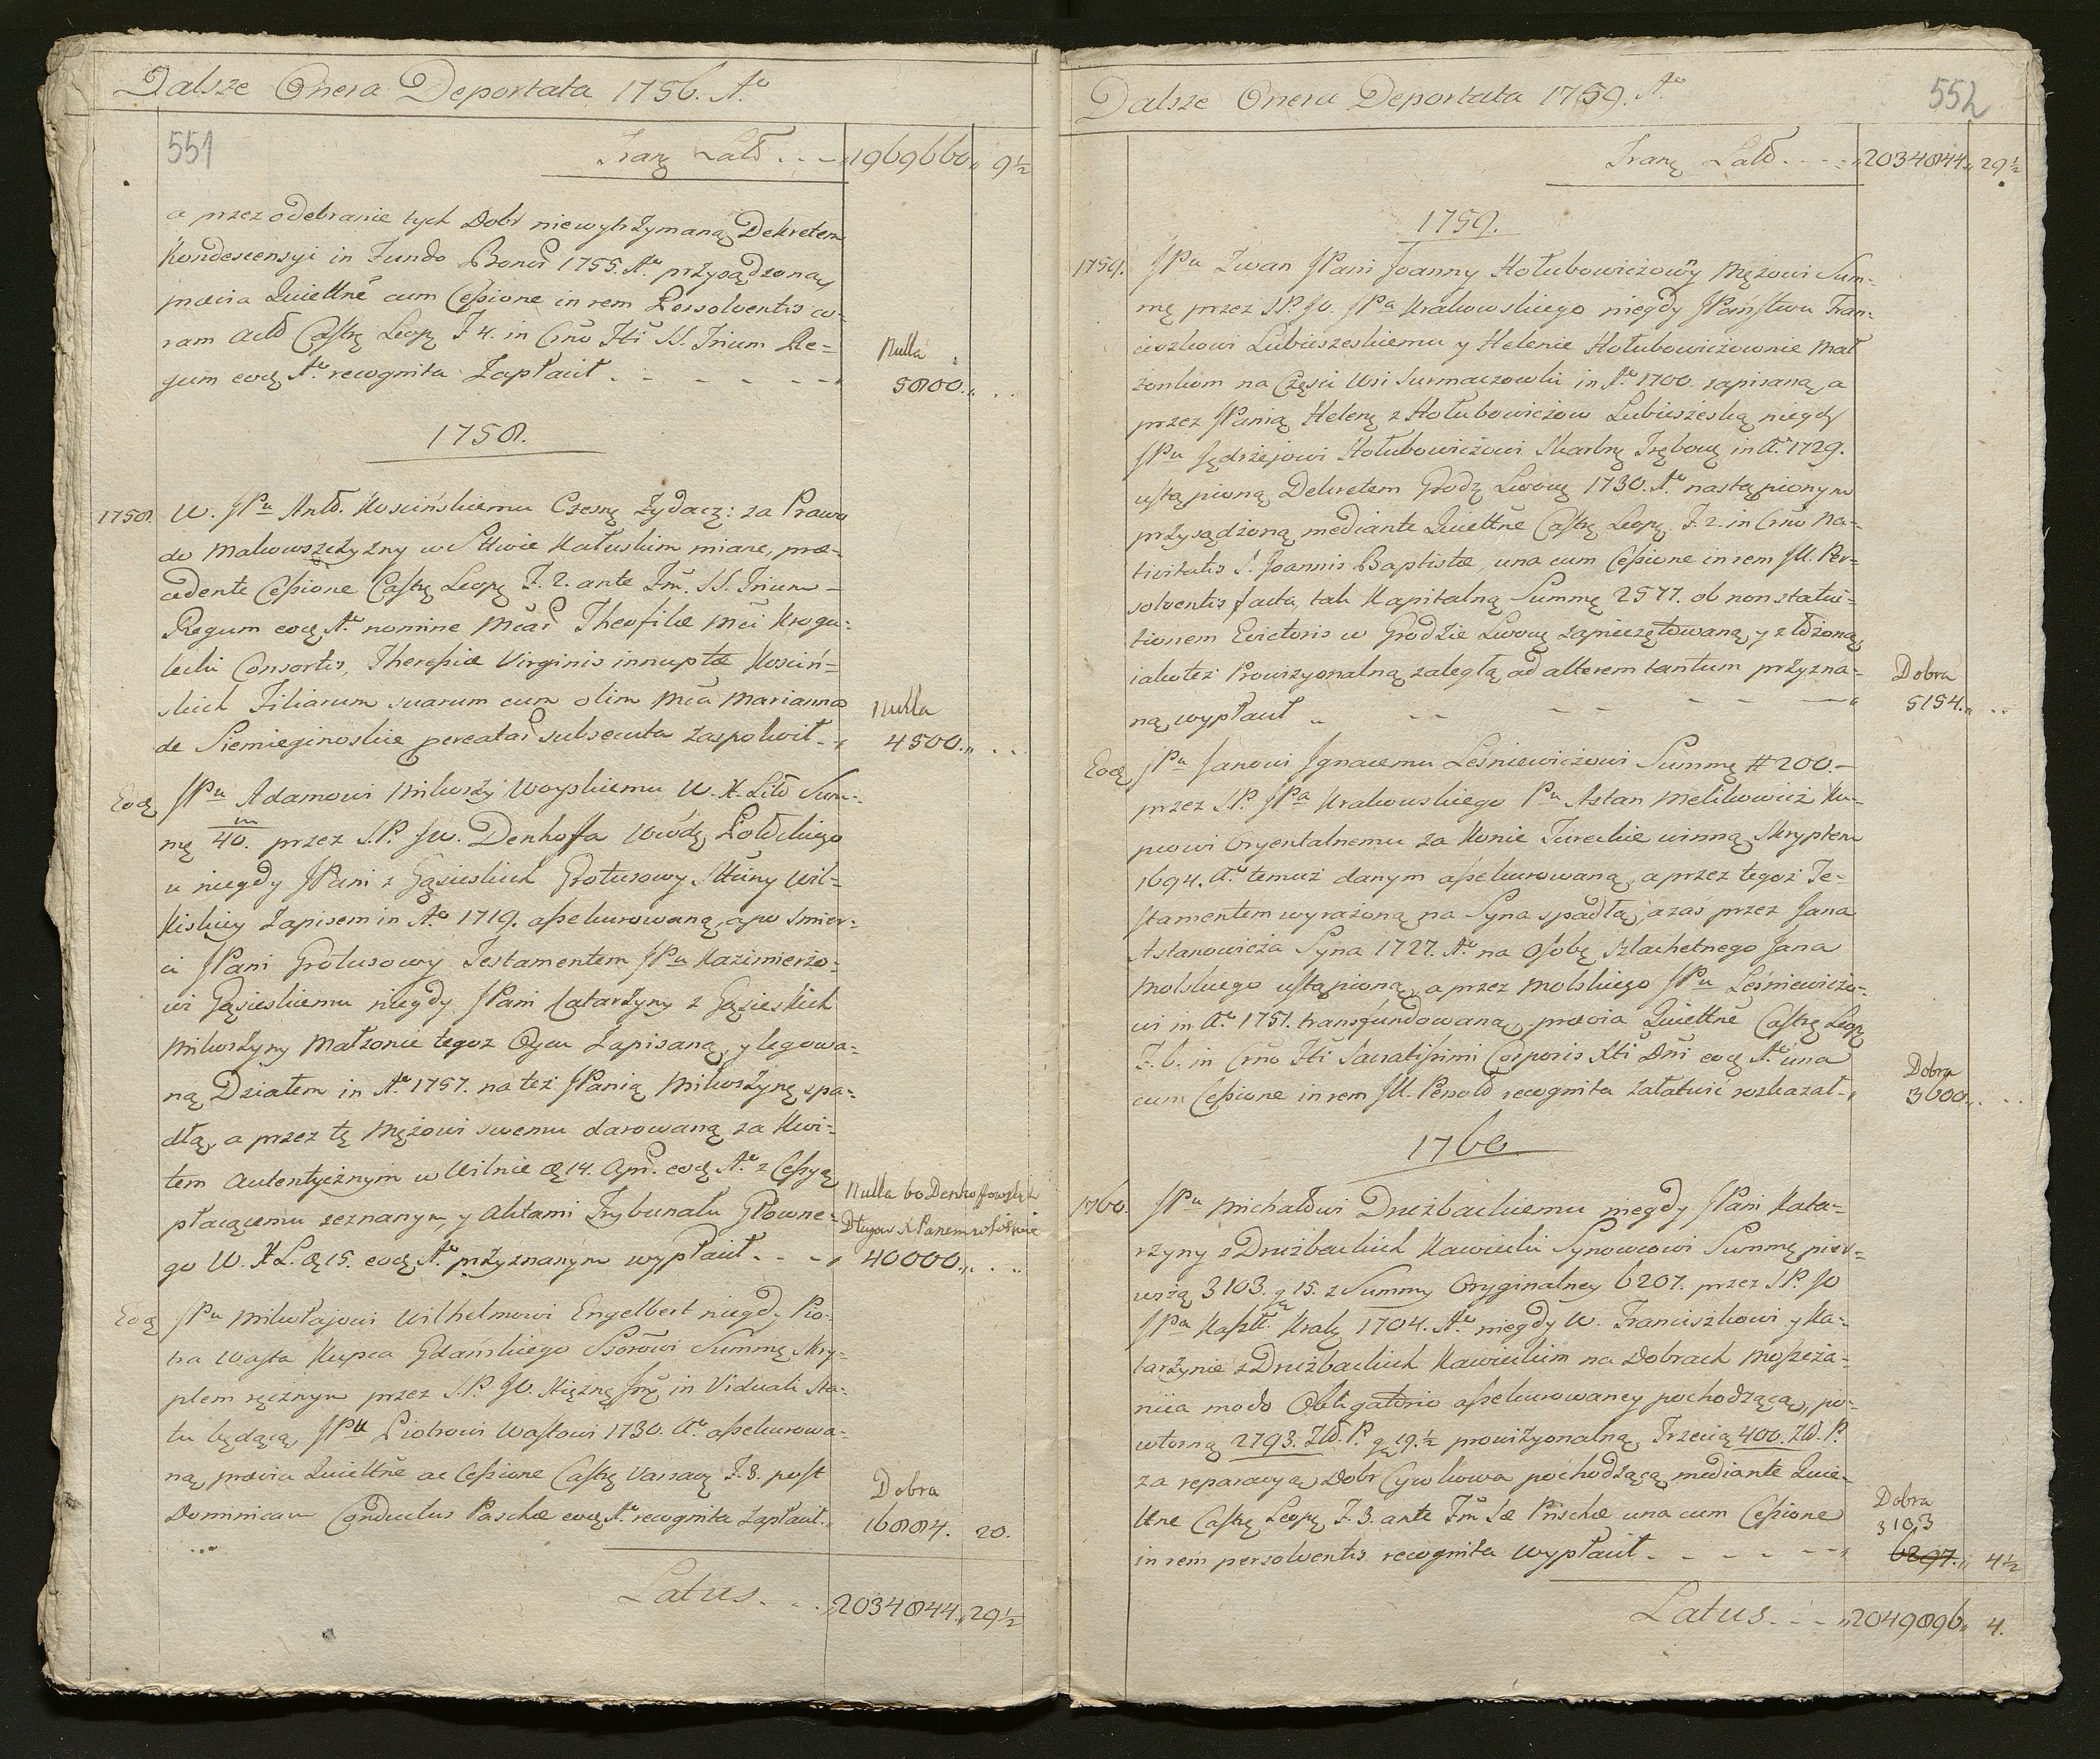 Dalsze Onera Deportata 1756. Aº
551
Tranz Latô . . - „1969660„ 9½
a przez odebranie tych Dobr niewytrzymaną Dekretem
Kondescensyi in Fundo Bonor 1755. Aº przysądzoną
prævia Quiettñe cum Cessione in rem Persolventis co-
ram Actô Castrz Leopz F. 4. in Crño Fti SS. Trium Re=
gum eodz Aº recognita Zapłacił . - - - - - „
Nulla
5800.„ . .
1758.
1758. W. JPu Antô. Kościńskiemu Czesnz Zydacz: za Prawo
do Makowszczyzny w Sttwie Kałuskim miane, præ-
cedente Cessione Castrz Leopz F. 2. ante Fm̃. SS. Trium -
Regum eodz Aº nomine Mcar Theofilæ Mci Krogu-
lecki Consortis, Theresiæ Virginis innuptæ Kościń-
skich Filiarum suarum cum olim Mca Marianna
de Siemieginoskie pereatar subsecuta Zaspokoił - „
Nulla
4500.„ . .
Eodz JPu Adamowi Mikoszy Woyskiemu W. X. Litô Sum-
mę m/40. przez S.P. JW. Denhoffa Wwdę Połôckiego
u niegdy JPani z Gąsieskich Grotusowy Sttñy Wil-
kiskiey Zapisem in Aº 1719. assekurowaną, a po śmier-
ci JPani Grotusowy Testamentem JPu Kazimierzo-
wi Gąsieskiemu niegdy JPani Catarzyny z Gąsieskich
Mikoszyny Małżonie tegoz Oycu Zapisaną, y legowa-
ną Działem in Aº 1757. na też JPanią Mikoszynę spa-
dłą, a przez tę Mężowi swemu darowaną za Kwi-
tem Autentycznym w Wilnie dz 14. Apr. eodz Aº z Cessyą
płacącemu zeznanym, y Aktami Trybunału Głowne-
go W. X L. dz 15. eodz Aº przyznanym wypłacił . - - „
Nulla bo Denhoffowskich
Długow X Panem włożnie
40000.„ . „
Eodz JPu Mikołajowi Wilhelmowi Engelbert niegdy Pio-
tra Wasta Kupca Gdańskiego Ssorowi Summę Skry-
ptem ręcznym przez S.P. JO. Xiężnę Jmę in Viduali Sta-
tu będącą, JPu Piotrowi Wastowi 1730. Aº assekurowa-
ną, prævia Quiettñe ac Cessione Castrz Varsavz F. 3. post
Dominicam Conductus Paschæ eodz Aº recognita Zapłacił.„
Dobra
16884. 20.
Latus. . . „2034844.„29½
Dalsze Onera Deportata 1759. Aº
552
Tranz Latô . - - - „2034844„ 29½
1759.
1759. JPu Iwan JPani Joanny Hołubowiczowny Mężowi Sum-
mę przez S.P. JO. JPa Krakowskiego niegdy JPaństwu Fran-
ciszkowi Lubieszeskiemu y Helenie Hołubowiczownie Mał-
żonkom na Części Wsi Surmaczowki in Aº 1700. zapisaną, a
przez JPanią Helenę z Hołubowiczow Lubieszeską niegdy
JPu Jędrzejowi Hołubowiczowi Skarbnz Trębowz in Aº 1729.
ustąpioną Dekretem Grodz Lwowz 1730. Aº nastąpionym
przysądzoną mediante Quiettñe Castrz Leopz F. 2. in Crño Na-
tivitatis S. Joannis Baptistæ, una cum Cessione in rem JW. Per-
solventis facta, tak Kapitalną Summę 2577. ob non statui-
tionem Evictoris w Grodzie Lwowz zapieczętowaną, y złożoną,
iako też Prowizyonalną zaległą ad alterem tantum przyzna-
ną wypłacił „ - - - - - - - „
Dobra
5154.„ . .
Eodz JPu Janowi Ignacemu Leśniewiczowi Summę # 200. -
przez S.P. JPa Krakowskiego Pu Astan Melikowicz Ku-
pcowi Oryentalnemu za Konie Tureckie winną, Skryptem
1694. Aº temuż danym assekurowaną, a przez tegoż Te-
stamentem wyrażoną na Syna spadłą, a zaś przez Jana
Astanowicza Syna 1727. Aº na Osobę Szlachetnego Jana
Molskiego ustąpioną, a przez Molskiego JPu Leśniewiczo-
wi in Aº 1751. transfundowaną, prævia Quiettñe Castrz Leopz
F. 6. in Crño Fti Sacratissimi Corporis Xti Dñi eodz Aº una
cum Cessione in rem JW. Persolô recognita załatwić roskazał - „
Dobra
3600„ . .
1760
1760. JPu Michałôwi Drużbackiemu niegdy JPani Kata-
rzyny z Drużbackich Kawiecki Synowcowi Summę pier-
wszą 3103. gz 15. z Summy Oryginalney 6207. przez S.P. JO
JPa Kasztt. Krakz 1704. Aº niegdy W. Franciszkowi y Ka-
tarzynie z Drużbackich Kawieckim na Dobrach Moszcza-
nica modo Obligatorio assekurowaney pochodzącą, po-
wtorną 2793. Złô. P. gz 19.½ prowizyonalną, Trzecią 400. Złô. P.
za reparacyą Dobr Cywkowa pochodzącą mediante Quie-
ttñe Castrz Leopz F. 3. ante Fm̃ Sæ Priscæ una cum Cessione
in rem persolventis recognita wypłacił . - - - - - - „
Dobra
3103
6297.„ 4½
Latus. - - - „2049896„ 4.